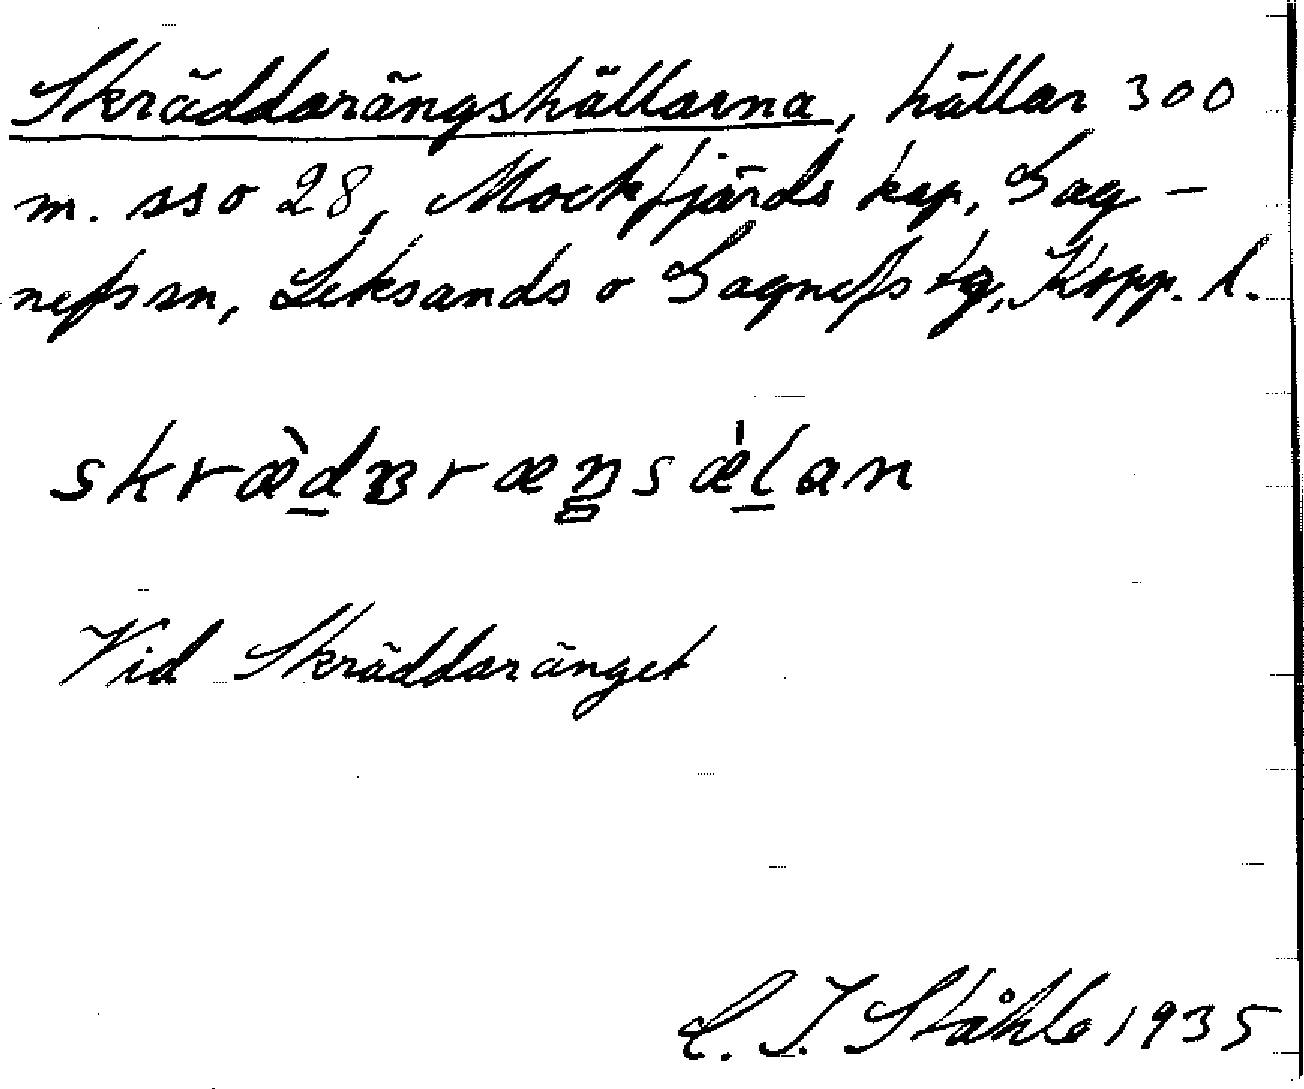 Skräddarängshällarna, hällar 300
m. sso 28, Mockfjärds kap, Gag-
nefs sn, Leksands o Gagnefs tg, Kopp. l.
Vid Skräddaränget
C. I. Ståhle 1935